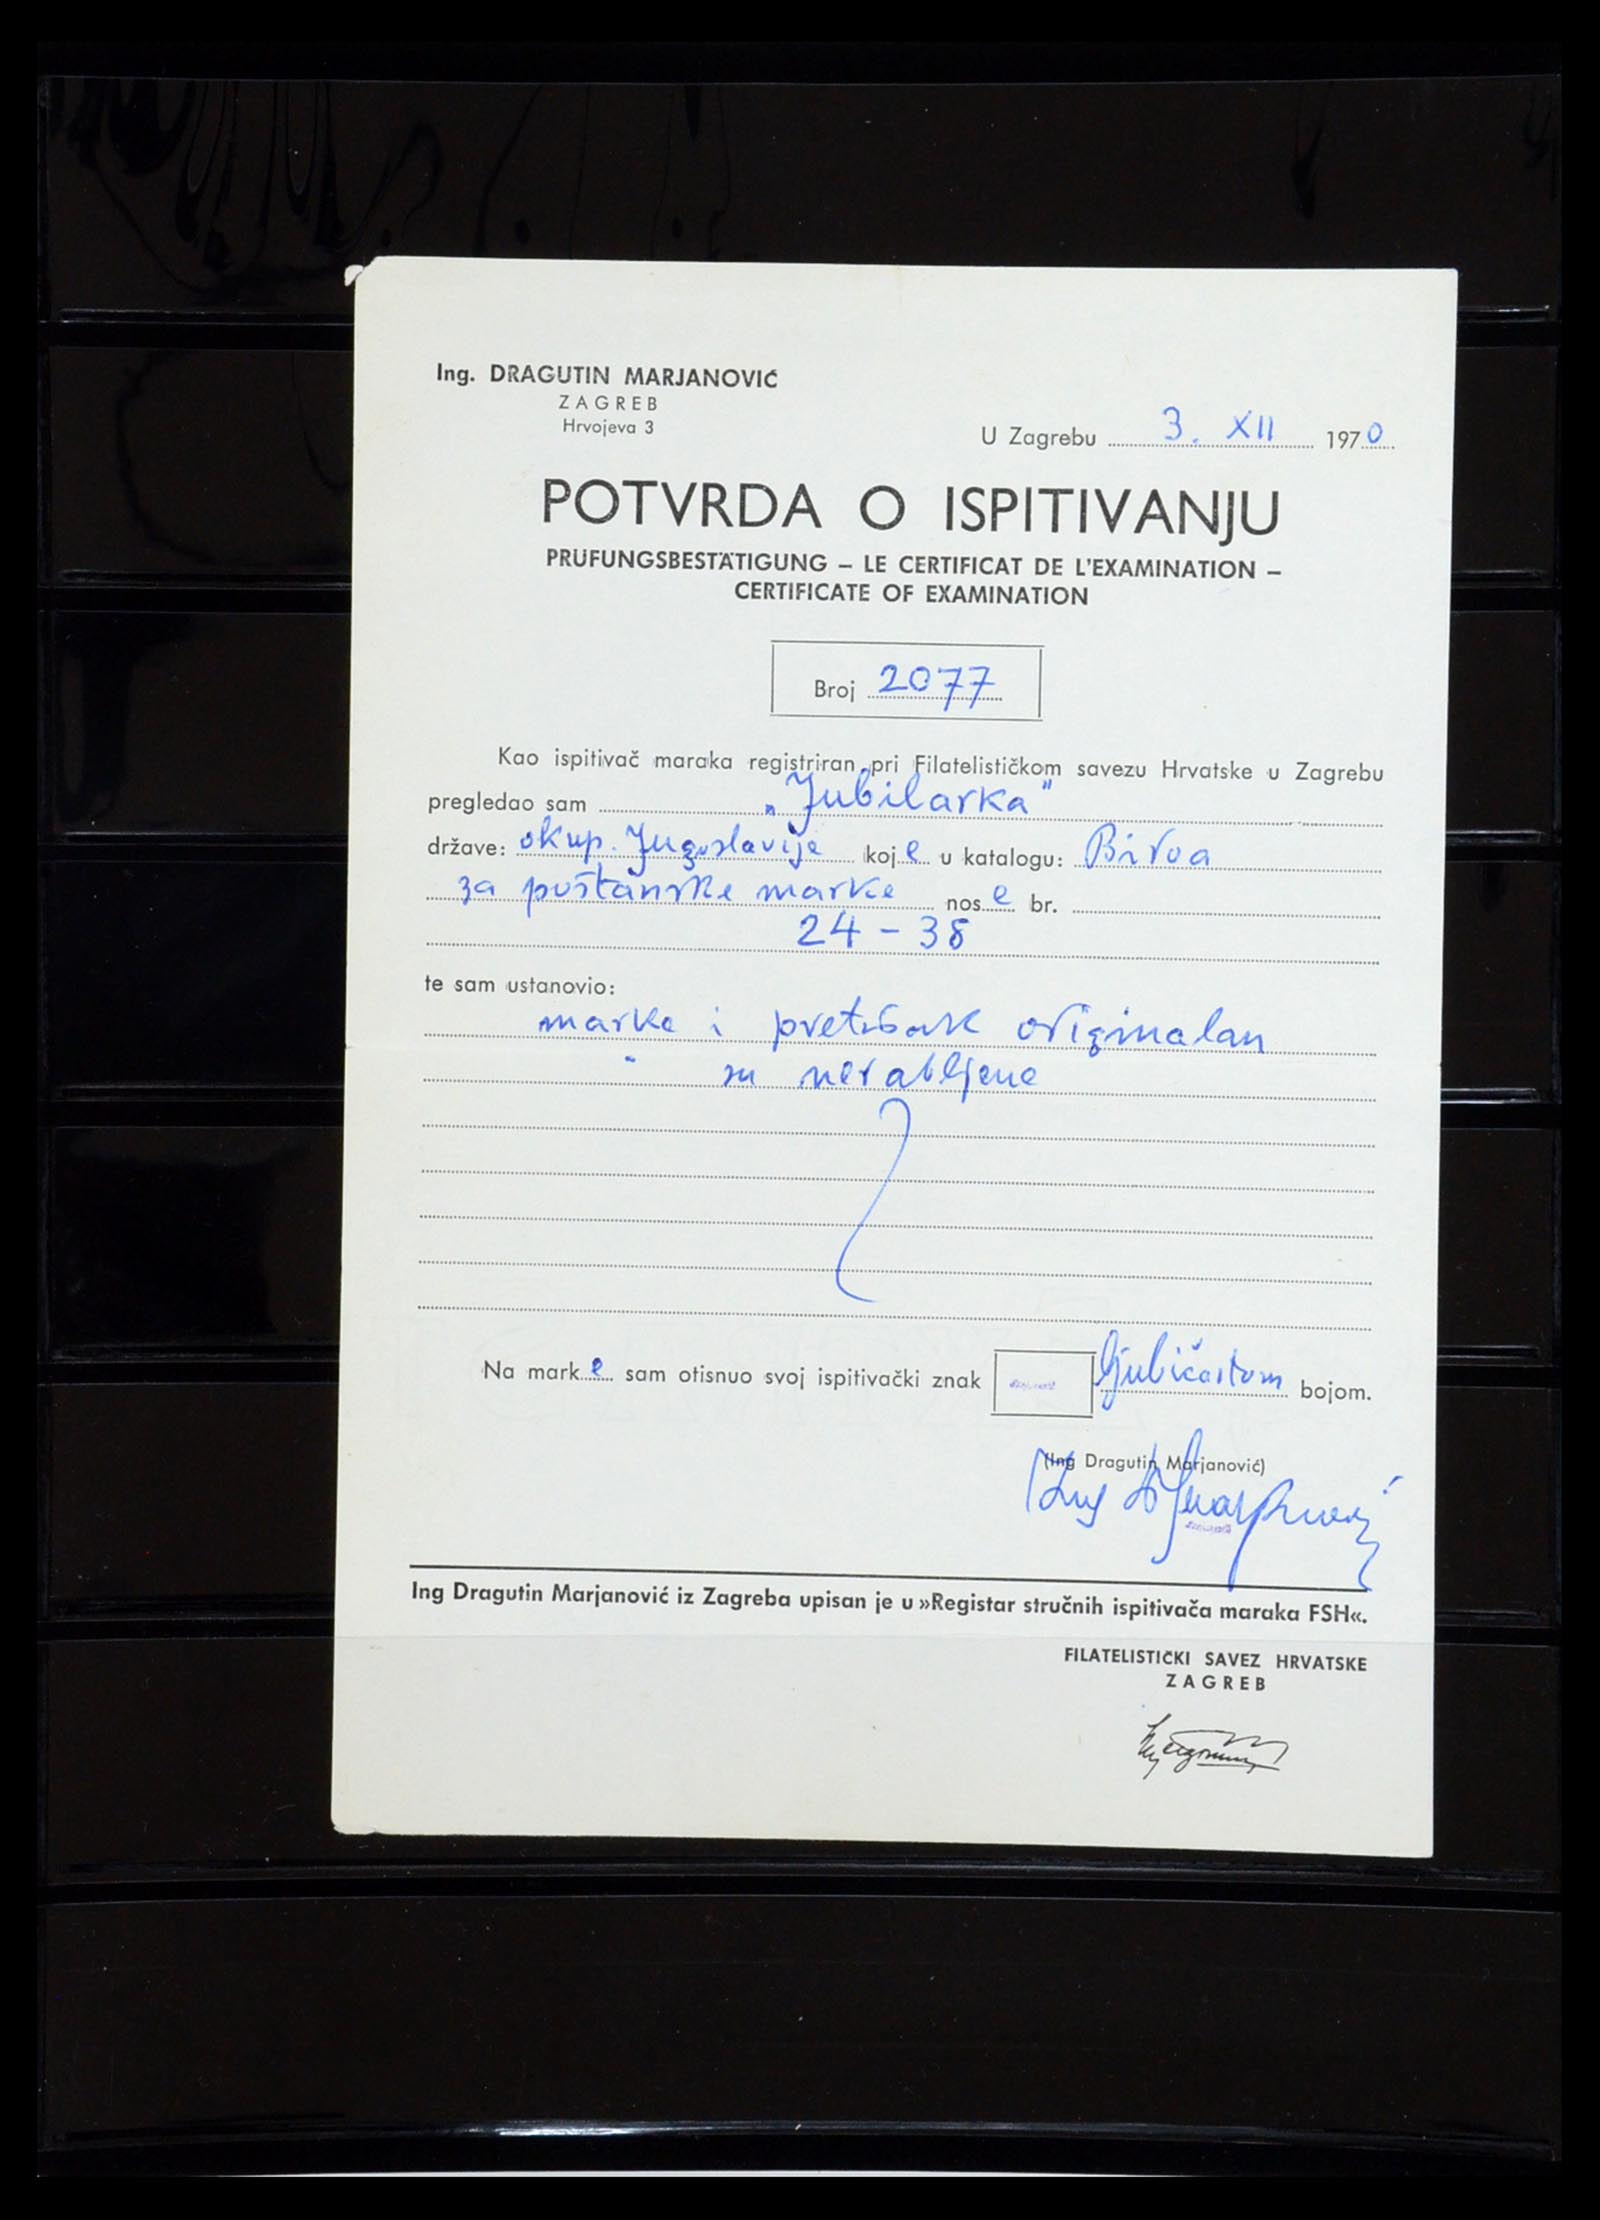 Ing. DRAGUTIN MARJANOVIĆ
ZAGREB
Hrvojeva 3
U Zagrebu 3. XII 1970
POTVRDA O ISPITIVANJU
PRÜFUNGSBESTÄTIGUNG – LE CERTIFICAT DE L'EXAMINATION –
CERTIFICATE OF EXAMINATION
Broj 2077
Kao ispitivač maraka registriran pri Filatelističkom savezu Hrvatske u Zagrebu
pregledao sam „Jubilarka"
države: okup. Jugoslavije koje u katalogu:
za poštanske marke nose br.
24 - 38
te sam ustanovio:
marke i pretisak originalan
" su nerabljene
Na marke sam otisnuo svoj ispitivački znak ljubičastom bojom.
(Ing Dragutin Marjanović)
Ing Dragutin Marjanović iz Zagreba upisan je u »Registar stručnih ispitivača maraka FSH«.
FILATELISTIČKI SAVEZ HRVATSKE
ZAGREB